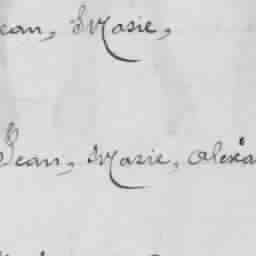 ean, Marie,
Jean, Marie, Alexa